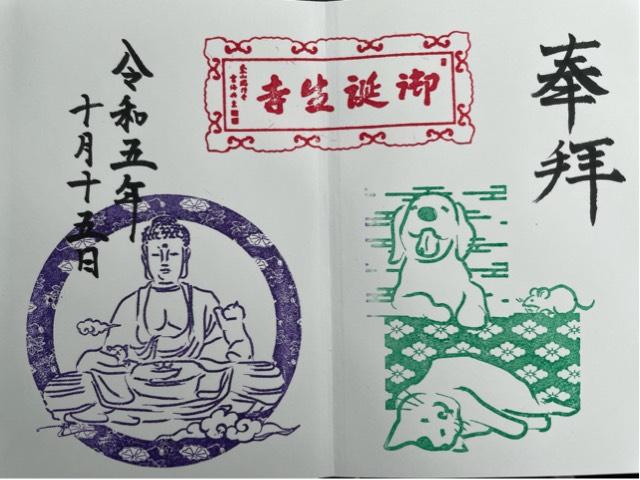 奉拝
御誕生寺
令和五年
十月十五日